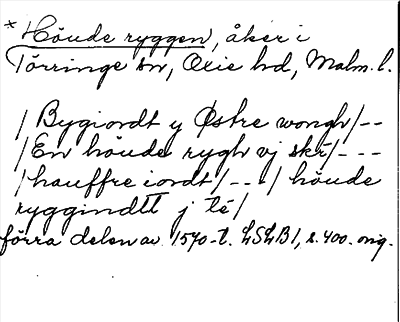 * Höude ryggen, åker i
Törringe sn, Oxie hd, Malm. l.
/ Bygiordt y Østre wongh /--
/ En höude rygh vj skr /---
/ hauffre iordt /--- / höude
ryggindtt j té /
förra delen av 1570-t. LSLB 1, s. 400. orig.